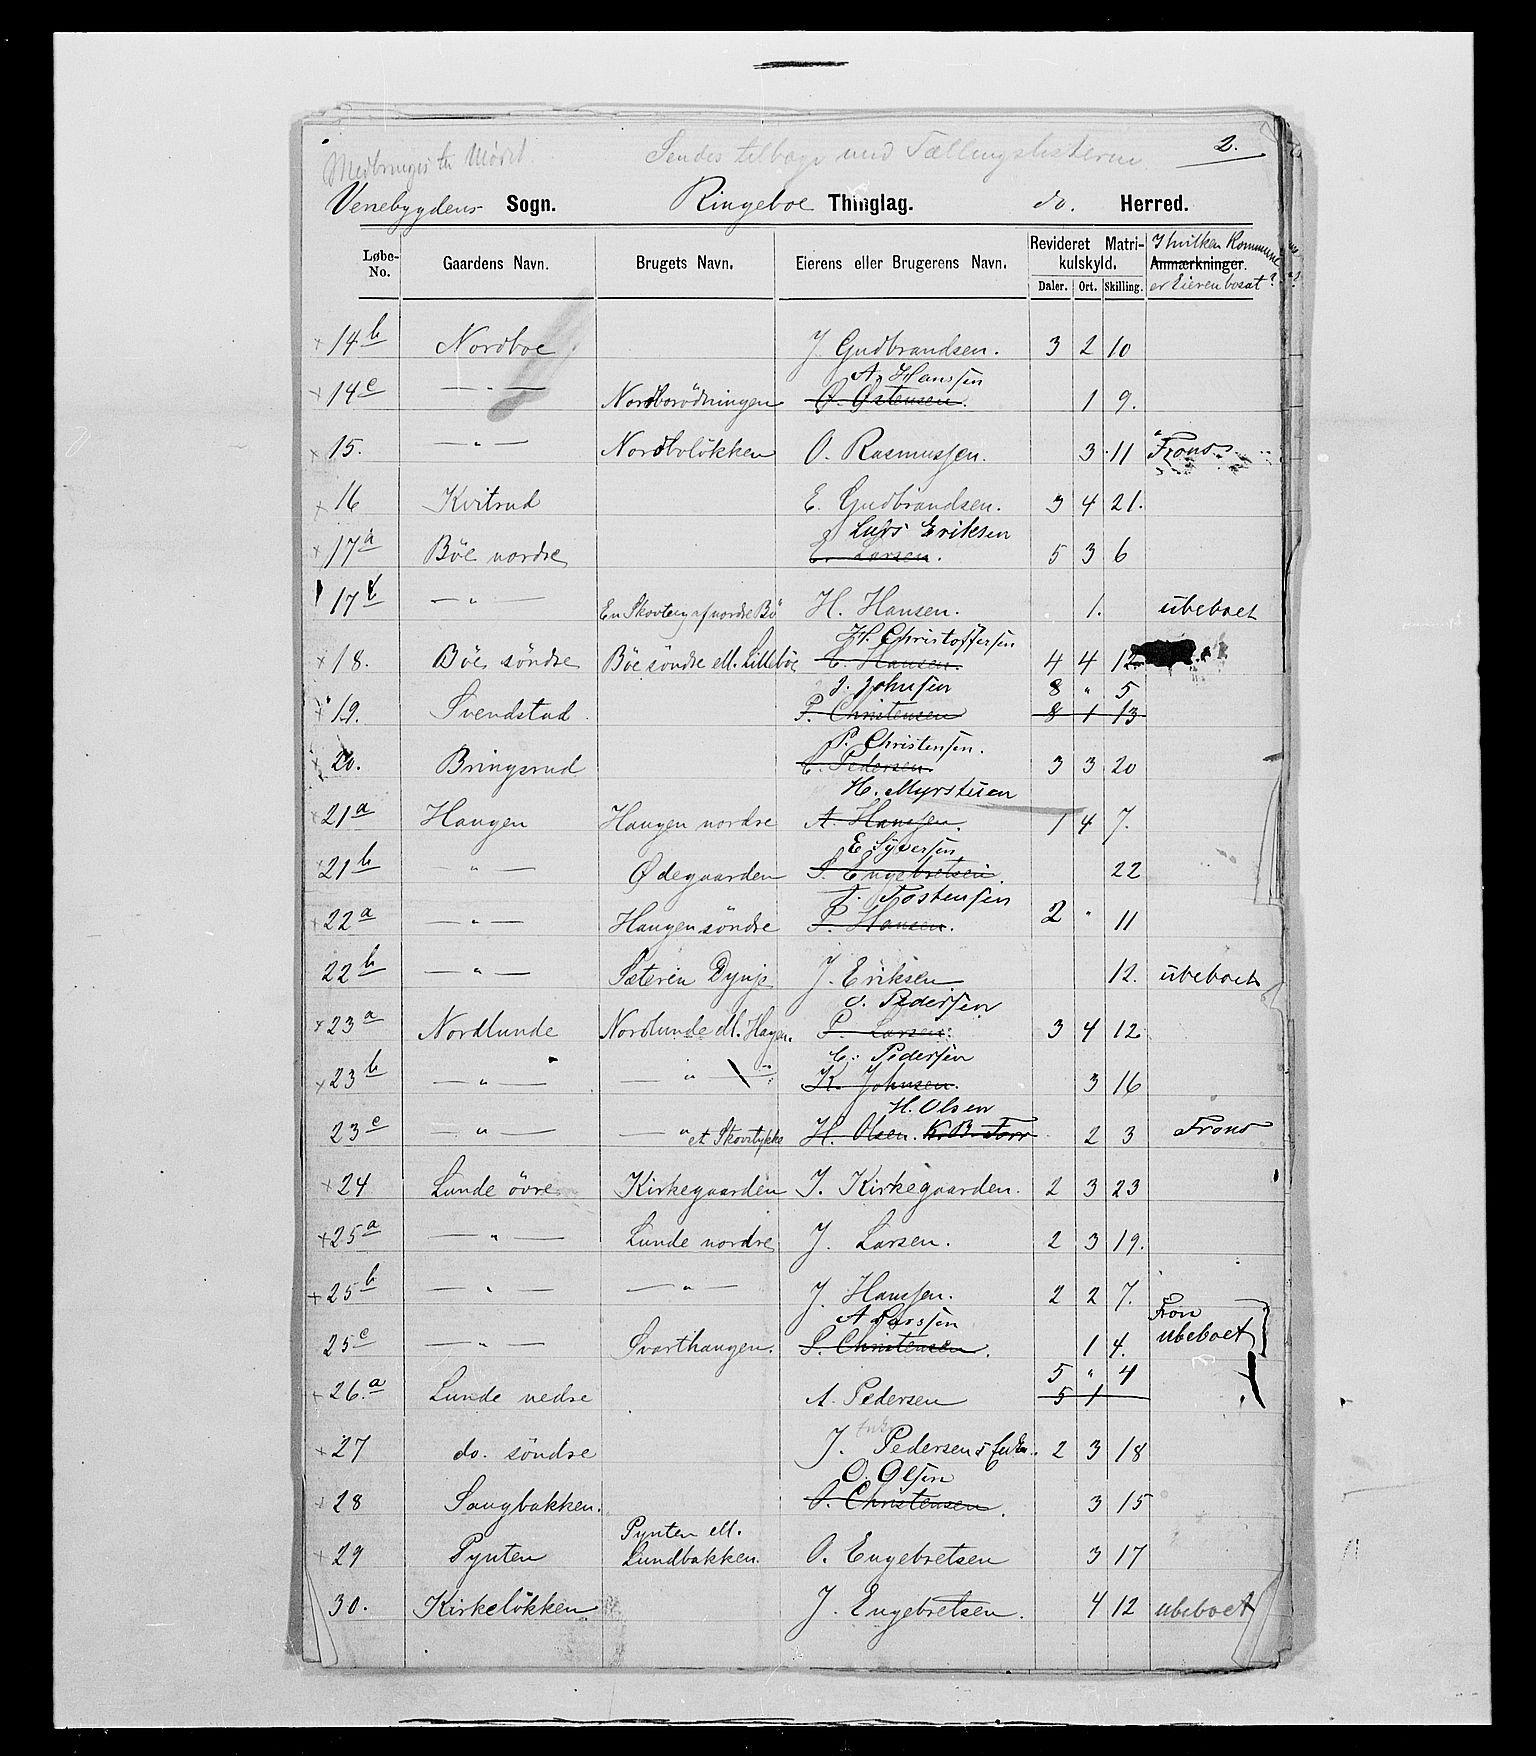 2.
Medbringes til Mødet
Sendes tilbage med Tællingslisterne
Venebygdens Sogn. Ringeboe Thinglag. do. Herred.
Løbe-No. Gaardens Navn. Brugets Navn. Eierens eller Brugerens Navn. Revideret Matrikulskyld. Daler. Ort. Skilling. Anmærkninger. I hvilken Kommune er Eieren bosat?
14b Nordboe J. Gudbrandsen. 3 2 10
A. Hanssen
14c — " — Nordborödningen O. Østensen. 1 9.
15. — " — Nordboløkken O. Rasmussen. 3 11 Frons
16 Kvitrud E. Gudbrandsen. 3 4 21.
Lars Eriksen
17a Böe nordre E. Larsen. 5 3 6
17b — " — En Skovteig af nordre Bö H. Hansen. 1. ubeboet
H. Christoffersen
18. Böe söndre Böe söndre ell. Lilleböe C. Hansen. 4 4 12
J. Johnsen 8 " 5
19. Svendstad P. Christensen 8 1 13
P. Christensen.
20. Bringsrud C. Pedersen. 3 3 20
H. Myrstuen
21a Haugen Haugen nordre A. Hanssen. 1 4 7.
E. Syversen
21b " — Ødegaarden S. Engebretsen. 22
T. Tostensen
22a — " — Haugen söndre P. Hansen. 2 " 11
22b — " — Sæteren Dynje J. Eriksen 12. ubeboet
O. Pedersen
23a Nordlunde Nordlunde ell. Hagen. P. Larsen. 3 4 12
C. Pedersen
23b — " — — " — K. Johnsen. 3 16
H. Olsen
23c — " — — " et Skovstykke H. Olsen. K. B. Torr 2 3 Frons
24 Lunde övre Kirkegaarden J. Kirkegaarden. 2 3 23
25a — " — Lunde nordre J. Larsen. 2 3 19.
25b — " — — " — J. Hansen. 2 2 7.
A. Larssen Fron
25c — " — Svarthaugen. S. Christensen. 1 4. ubeboet
5 " 4
26.a Lunde nedre A. Pedersen 5 1
27 do. söndre J. Pedersens Enke. 2 3 18
O. Olsen
28 Saugbakken. O. Christensen. 3 15
Pynten ell.
29 Pynten Lundbakken. O. Engebretsen 3 17
30. Kirkelökken J. Engebretsen. 4 12 ubeboet